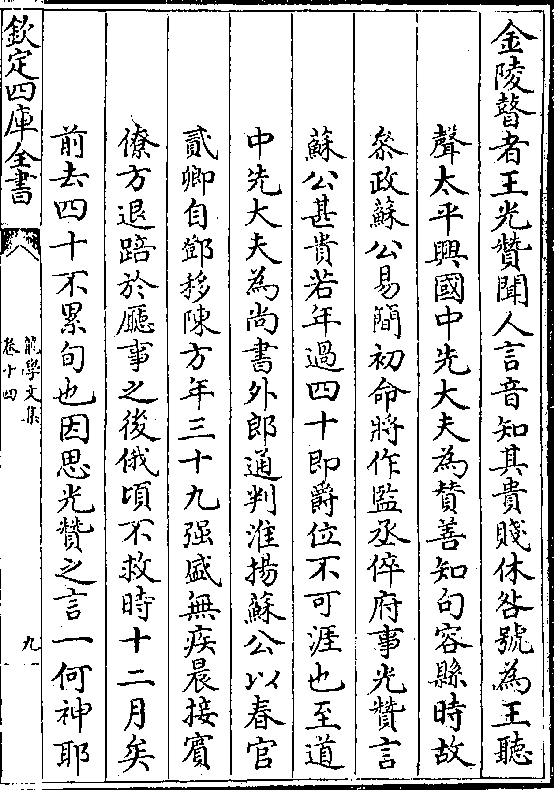 金陵瞽者王光贊聞人言音知其貴賤休咎號為王聽
聲太平興國中先大夫為賛善知句容縣時故
叅政蘇公易簡初命將作監丞倅府事光贊言
蘇公甚貴若年過四十即爵位不可涯也至道
中先大夫為尚書外郎通判淮揚蘇公以春官
貳卿自鄧移陳方年三十九强盛無疾晨接賓
僚方退踣於廳事之後俄頃不救時十二月矣
前去四十不累旬也因思光贊之言一何神耶
欽定四庫全書
龍學文集
卷十四
九